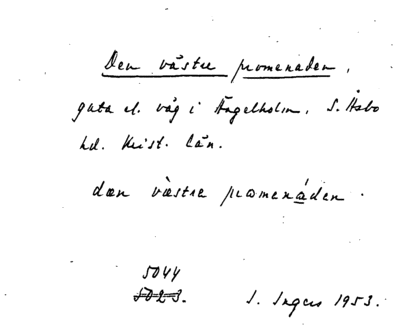 Den västre promenaden,
gata el. väg i Ängelholm, S. Åsbo
hd. Krist. län.
dæn væstre promená̱den.
5044
5023.
I. Ingers 1953.